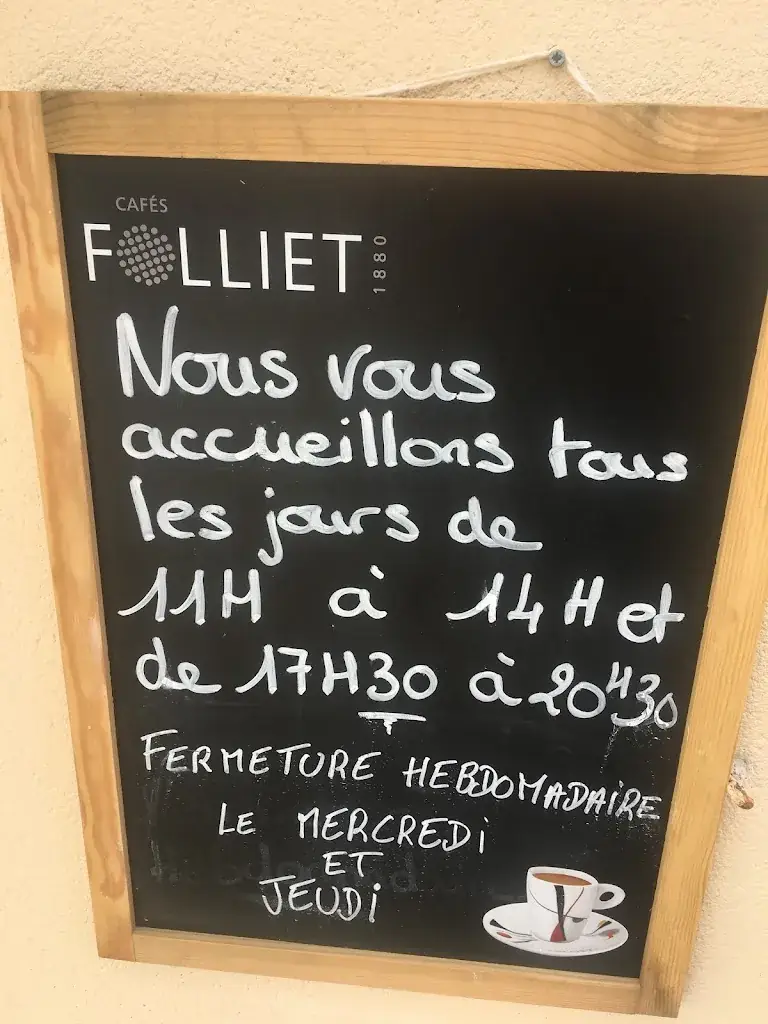 CAFÉS
FOLLIET 1880
Nous vous
accueillons tous
les jours de
11H à 14H et
de 17H30 à 20H30
FERMETURE HEBDOMADAIRE
LE MERCREDi
ET
JEUDi